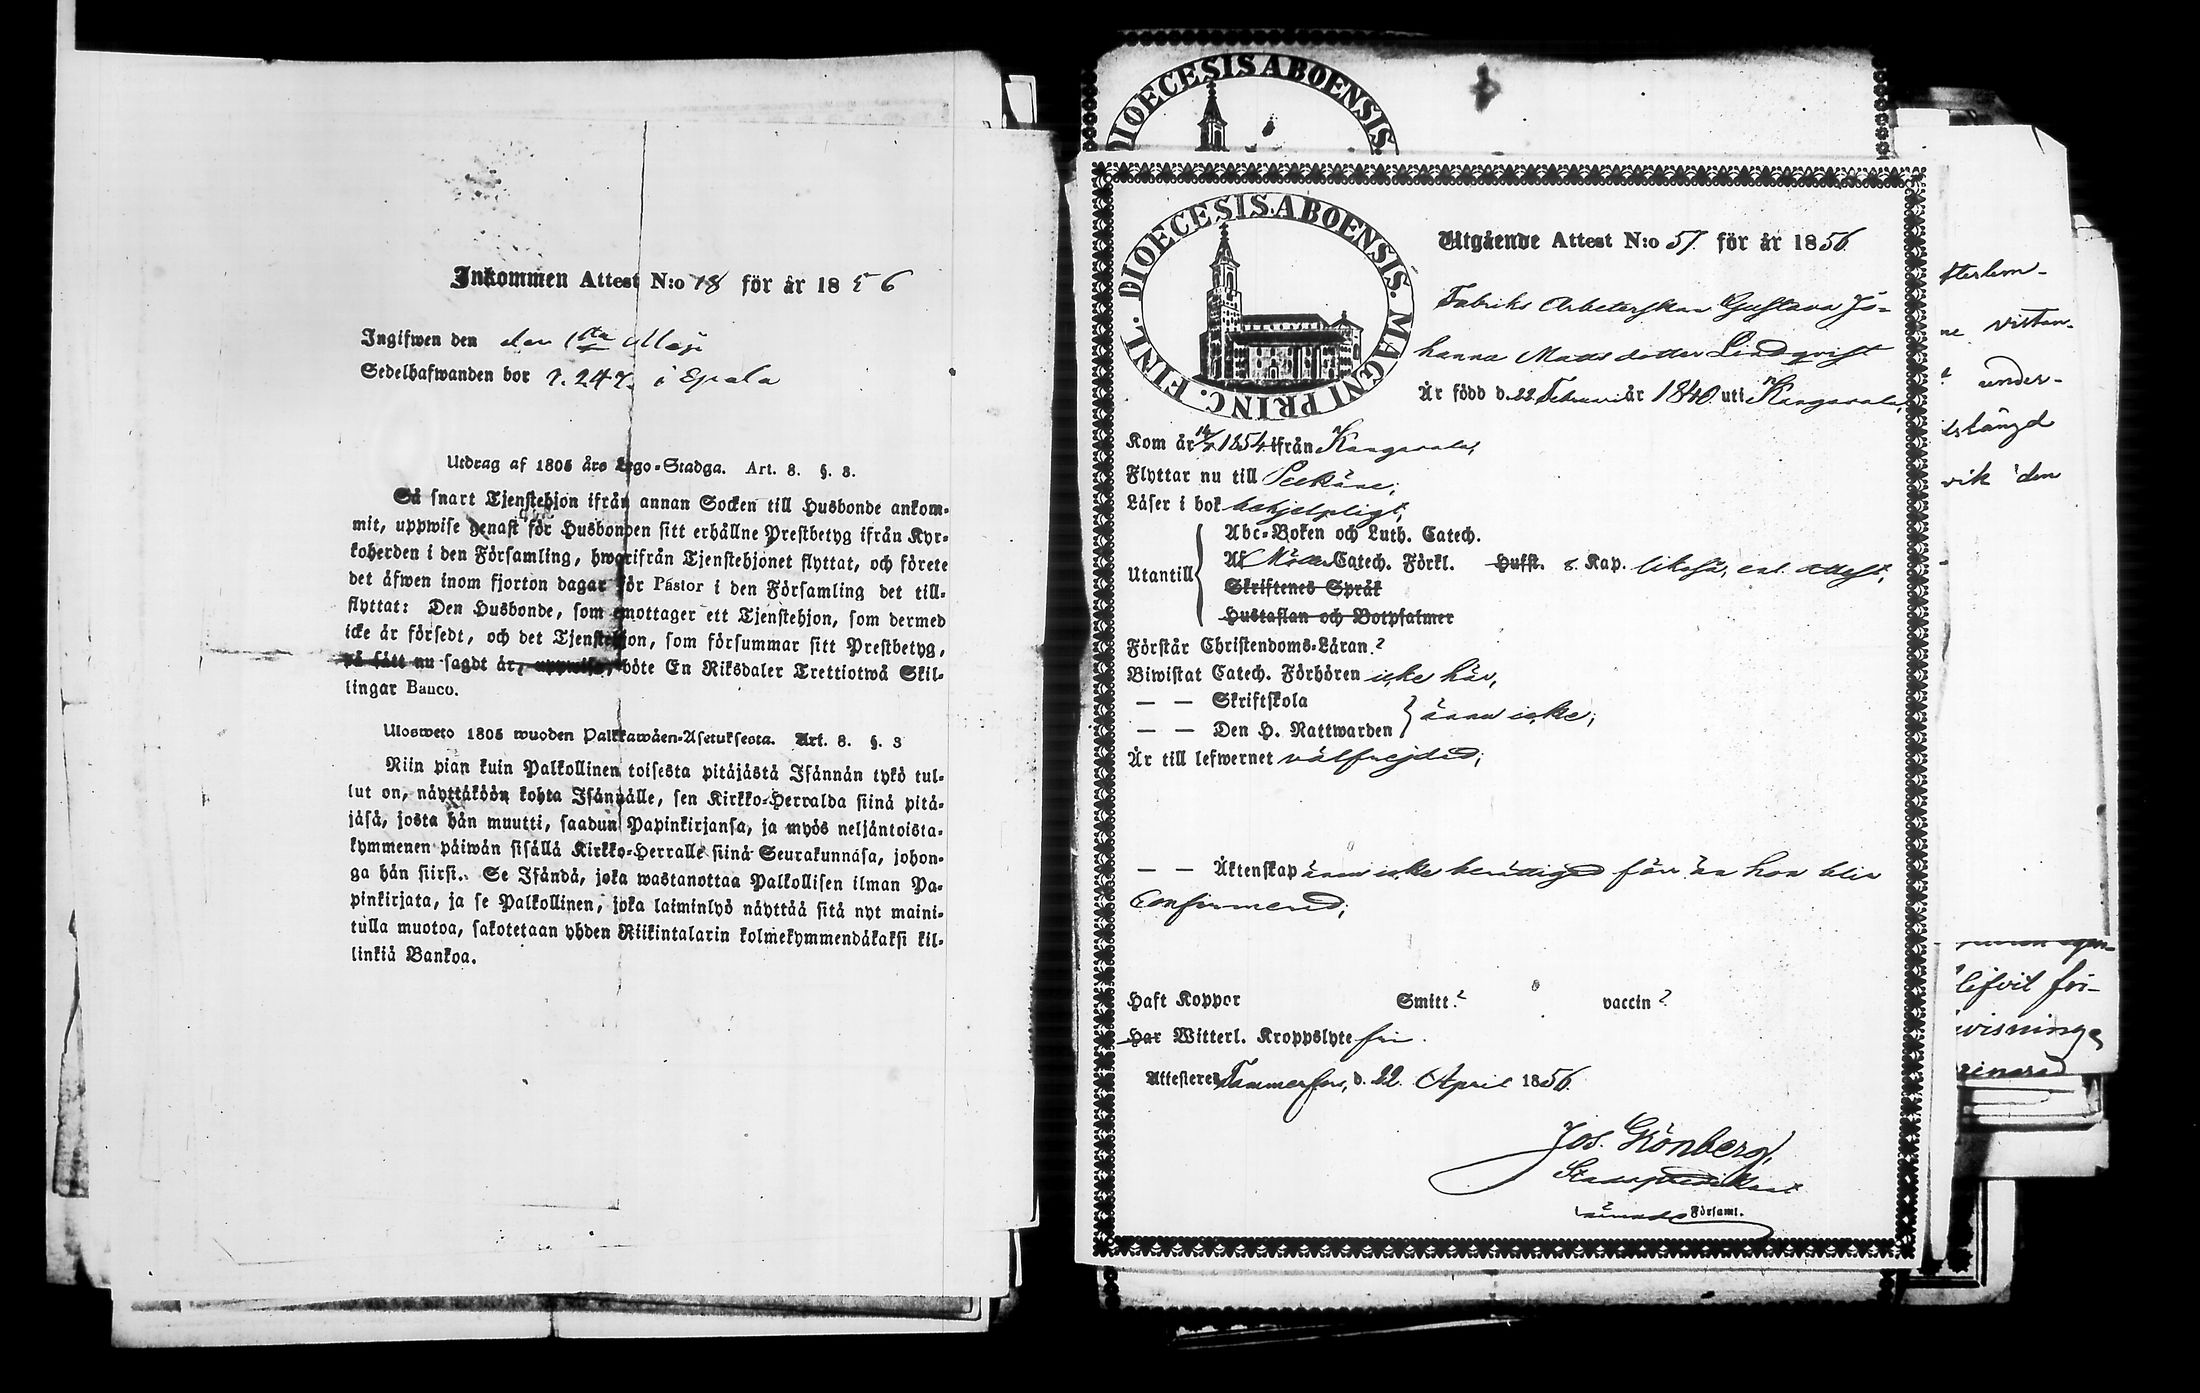 Inkommen Attest N:o 18 för år 1856
Ingifwen den den 1sta Maji
Sedelhafwanden bor p. 247. i Epala
Utdrag af 1805 års Lego-Stadga. Art. 8. §. 3.
Så snart Tjenstehjon ifrån annan Socken till Husbonde ankom-
mit, uppwise genast för Husbonden sitt erhållne Prestbetyg ifrån Kyr-
koherden i den Församling, hwarifrån Tjenstehjonet flyttat, och förete
det äfwen inom fjorton dagar för Pastor i den Församling det till-
flyttat: Den Husbonde, som emottager ett Tjenstehjon, som dermed
icke är försedt, och det Tjenstehjon, som försummar sitt Prestbetyg,
på sätt nu sagdt är, uppwisa, böte En Riksdaler Trettiotwå Skil-
lingar Banco.
Ulosweto 1805 wuoden Palkkawäen-Asetuksesta. Art. 8. §. 3
Niin pian kuin Palkollinen toisesta pitäjästä Isännän tykö tul-
lut on, näyttäköön kohta Isännälle, sen Kirkko-Herralda siinä pitä-
jäsä, josta hän muutti, saadun Papinkirjansa, ja myös neljäntoista-
kymmenen päiwän sisällä Kirkko-Herralle siinä Seurakunnasa, johon-
ga hän siirsi. Se Isändä, joka wastanottaa Palkollisen ilman Pa-
pinkirjata, ja se Palkollinen, joka laiminlyö näyttää sitä nyt maini-
tulla muotoa, sakotetaan yhden Riikintalarin kolmekymmendäkaksi kil-
linkiä Bankoa.
DIOECESIS ABOENSIS.
DIOECESIS. ABOENSIS. MAGNI PRINC. FINL.
Utgående Attest N:o 57. för år 1856
Fabriks Arbeterskan Gustava Jo-
hanna Matts dotter Lindqvist
Är född d. 22 Februari år 1840. uti Kangasala,
Kom år 1854 ifrån Kangasala,
Flyttar nu till Pelkäne,
Läser i bok behjelpligt,
Abc-Boken och Luth. Catech.
Utantill Af Möllers Catech. Förkl. Husst. 8. Kap. likaså, enl. attest,
Skriftenes Språk
Hustaflan och Botpsalmer
Förstår Christendoms-Läran ?
Biwistat Catech. Förhören icke här,
— — Skriftskola
— — Den H. Nattwarden ännu icke,
Är till lefwernet välfrejdad;
— — Äktenskap ännu icke berättigad förr än hon blir
Confirmerad;
Haft Koppor Smitt. ? vaccin ?
Har Witterl. Kroppslyte fri.
Attesteres Tammerfors, d. 22. April 1856.
Jos. Grönberg,
Stadspredikant
Församl.
under-
längd
vik den